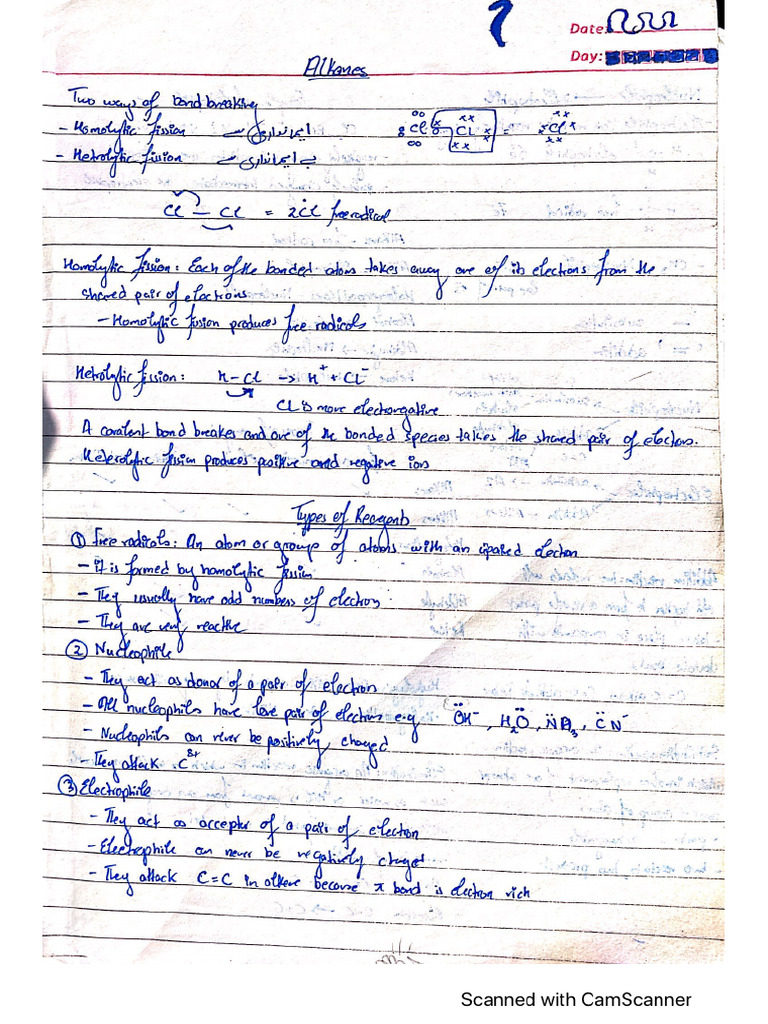 Date:
Day:
Alkanes
Two ways of bond breaking
- Homolytic fission ← ایمانداری
- Hetrolytic fission ← بے ایمانداری
Cl Cl = Cl
Cl — Cl = 2Cl free radical
Homolytic fission: Each of the bonded atom takes away one of its electrons from the
shared pair of electrons
- Homolytic fusion produces free radicals
Hetrolytic fission: H-Cl → H⁺ + Cl⁻
Cl is more electronegative
A covalent bond breakes and one of the bonded species takes the shared pair of electrons.
Heterolytic fission produces positive and negative ions
Types of Reagents
① Free radicals: An atom or groups of atoms with an upaired electron
- it is formed by homolytic fission
- They usually have odd numbers of electron
- They are very reactive
② Nucleophile
- They act as donor of a pair of electron
- All nucleophils have lone pair of electrons e.g ÖH⁻, H₂Ö, N̈H₃, C̈N⁻
- Nucleophils can never be positively charged
- They attack C^δ+
③ Electrophile
- They act as accepter of a pair of electron
- Electrophile can never be negatively charged
- They attack C=C in alkene because π bond is electron rich
Scanned with CamScanner